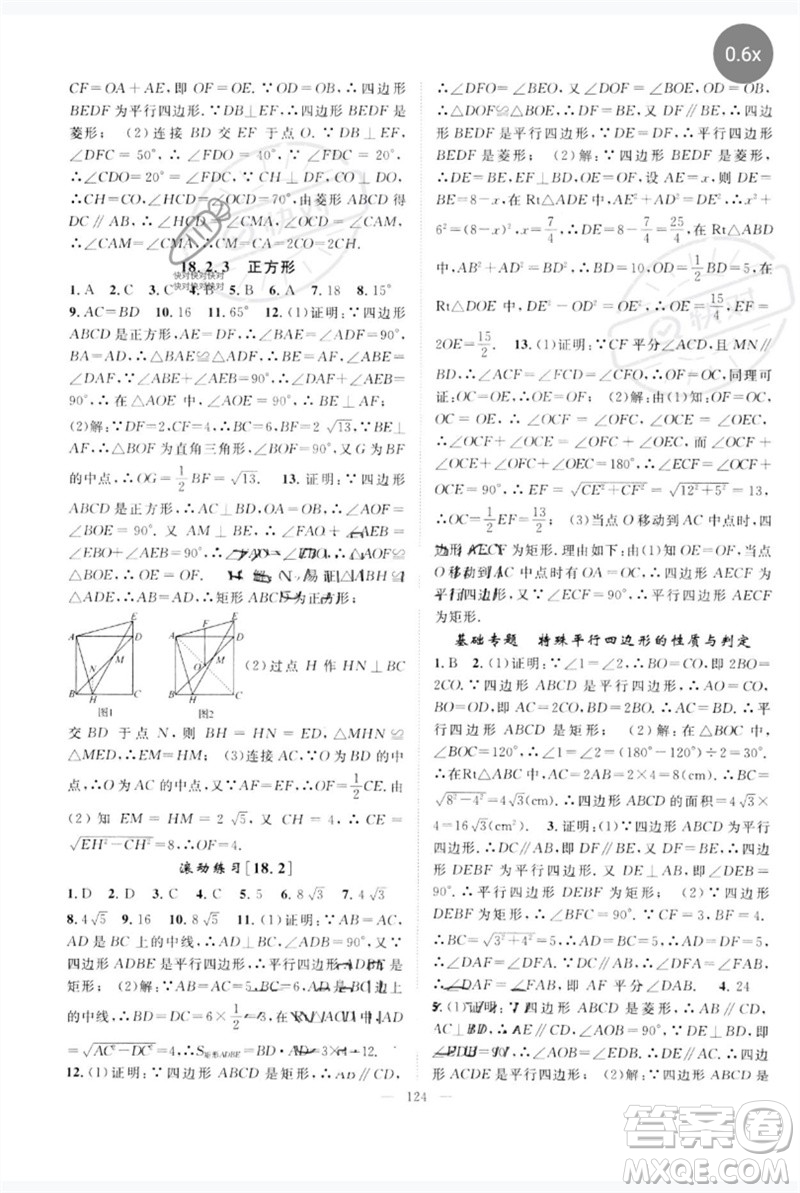 0.6x
CF=OA+AE,即 OF=OE.∵OD=OB,∴四边形
BEDF 为平行四边形.∵DB⊥EF,∴四边形 BEDF 是
菱形; (2)连接 BD 交 EF 于点 O.∵DB⊥EF,
∠DFC=50°,∴∠FDO=40°.∵∠CDF=20°,
∴∠CDO=20°,∴∠OCD=70°.由菱形 ABCD 得
DC∥AB,∴∠HCD=∠CMA,∠OCD=∠CMA,
∴∠CMA=∠CAM,∴CM=CA=2CO=2CH.
18.2.3 正方形
快对快对快对
快对快对快对
1.A 2.C 3.C 4.B 5.B 6.B 7.18 8.15°
9.AC=BD 10.16 11.65° 12.(1)证明:∵四边形
ABCD 是正方形,AE=DF,∴∠BAE=∠D=90°,
BA=AD,∴△BAE≌△ADF,∴∠DAF=∠ABE.
∵∠DAF+∠BAF=90°,∴∠DAF+∠AEB=90°,
∴在△AOE 中,∠AOE=90°,∴AF⊥BE;
(2)解:∵DF=2,CF=4,∴BC=6,BF=2√13.∵BE⊥
AF,∴△BOF 为直角三角形,∴BF 为斜边.又 G 为 BF
的中点,∴OG=1/2BF=√13. 13.证明:∵四边形
ABCD 是正方形,∴AC⊥BD,OA=OB,∴∠AOF=
∠BOE=90°.又 AM⊥BE,∴∠FAO+∠AEB=
∠EBO+∠AEB=90°,∴∠FAO=∠EBO,∴△AOF≌
△BOE,∴OE=OF.
ABCD 为正方形;
A D E M B H C
图1
A D E M O B H C
图2
(2)过点 H 作 HN⊥BC
交 BD 于点 N,则 BH=HN=ED,△MHN≌
△MED,∴HM=EM; (3)连接 AC,∵O 为 BD 的中
点,∴O 为 AC 的中点.又∵AF=EF,∴OF=1/2CE.由
(2)知 EM=HM=2√5,∴EH=4√5,∴CE=
√(EH²−CH²)=8,∴OF=4.
滚动练习[18.2]
1.D 2.D 3.C 4.C 5.5 6.8√3 7.4√3
8.4√5 9.16 10.8√5 11.(1)证明:∵AB=AC,
AD 是 BC 上的中线,∴AD⊥BC,∴∠ADB=90°.又∵
四边形 ADBE 是平行四边形,∴平行四边形 ADBE 是
矩形; (2)解:∵AB=AC=5,BC=6,AD 是 BC 边上
的中线,∴BD=DC=6×1/2=3.
√(AC²−DC²)=4,∴S矩形ADBE=BD·AD=3×4=12.
12.(1)证明:∵四边形 ABCD 是矩形,∴AD∥BC,
∴∠DFO=∠BEO.又∵∠DOF=∠BOE,OD=OB,
∴△DOF≌△BOE,∴DF=BE.又∵DF∥BE,∴四边形
BEDF 是平行四边形; (2)解:∵四边形 ABCD 是矩
形,∴AD=BC=8,AB=DC=6.∵四边形 BEDF 是菱形,
∴BE=DE.∵DE=BE,EF⊥BD,OE=OF.设 AE=x,则 DE=
BE=8−x,在 Rt△ADE 中,∵AE²+AB²=BE²,∴x²+
6²=(8−x)²,∴x=7/4,∴DE=8−7/4=25/4.在Rt△ABD
中,∵AB²+AD²=BD²,∴BD=10,∴OD=1/2BD=5,
在 Rt△DOE 中,∵DE²−OD²=OE²,∴OE=15/4,∴EF=
2OE=15/2. 13.(1)证明:∵CF 平分∠ACD,且 MN∥
BD,∴∠ACF=∠FCD=∠CFO,∴OF=OC,同理可
证:OC=OE,∴OE=OF; (2)解:由(1)知:OF=OC,
OC=OE,∴∠OCF=∠OFC,∠OCE=∠OEC,
∴∠OCF+∠OCE=∠OFC+∠OEC,而∠OCF+
∠OCE+∠OFC+∠OEC=180°,∴∠ECF=∠OCF+
∠OCE=90°,∴EF=√(CE²+CF²)=√(12²+5²)=13,
∴OC=1/2EF=13/2; (3)当点 O 移动到 AC 中点时,四
边形 AECF 为矩形.理由如下:由(1)知 OE=OF,当点
O 移动到 AC 中点时有 OA=OC,∴四边形 AECF 为
平行四边形,又∵∠ECF=90°,∴平行四边形 AECF
为矩形.
基础专题 特殊平行四边形的性质与判定
1.B 2.(1)证明:∵∠1=∠2,∴BO=CO,即 2BO=
2CO.∵四边形 ABCD 是平行四边形,∴AO=CO,
BO=OD,∴AC=2CO,BD=2BO,∴AC=BD,∴平行
四边形 ABCD 是矩形; (2)解:在△BOC 中,
∵∠BOC=120°,∴∠1=∠2=(180°−120°)÷2=30°,
∴在Rt△ABC 中,AC=2AB=2×4=8(cm),∴BC=
√(8²−4²)=4√3(cm).∴四边形 ABCD 的面积=4√3×
4=16√3(cm²). 3.证明:(1)∵四边形 ABCD 是平行
四边形,∴AB∥CD.∵BE∥DF,BE=DF,∴四边形
DEBF 是平行四边形.∵DE⊥AB,∴∠DEB=
90°,∴四边形 DEBF 是矩形; (2)∵四边形
DEBF 为矩形,∴∠BFC=90°.∵CF=3,BF=4,
∴BC=√(3²+4²)=5,∴AD=BC=5,∴AD=DF=5,
∴∠DAF=∠DFA.∵AB∥CD,∴∠DFA=∠FAB,
∴∠DAF=∠FAB,即 AF 平分∠DAB. 4.24
5.(1)证明:∵四边形 ABCD 是菱形,∴
AC⊥BD,∴∠AOB=90°.
∠EDB=∠AOB,∴DE∥AC,∴四边形
ACDE 是平行四边形; (2)解:∵四边形 ABCD 是
124
答案圈
MXQE.COM